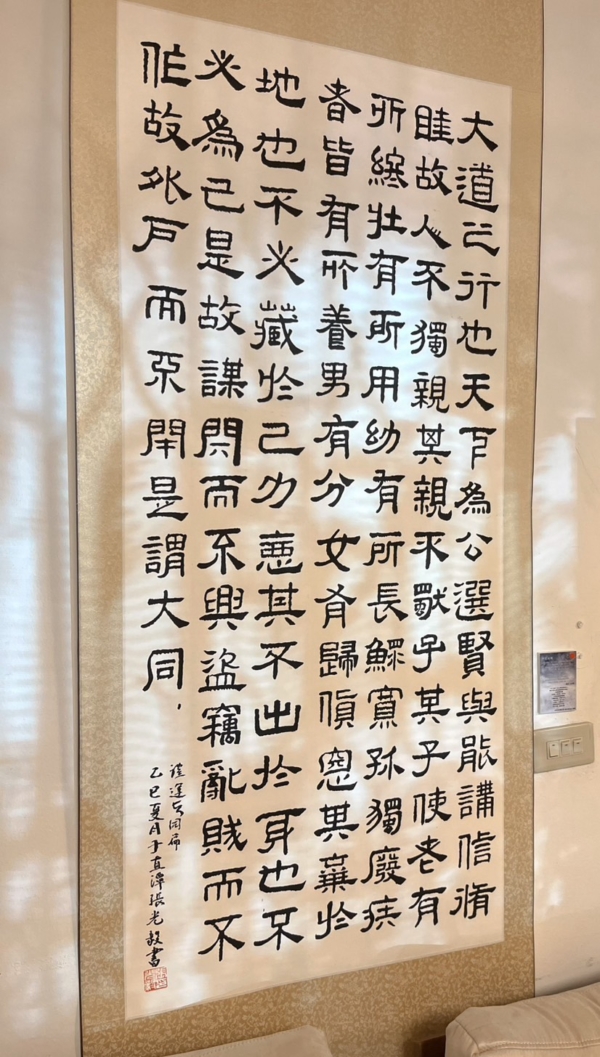 大道之行也天下為公選賢與能講信脩
睦故人不獨親其親不獨子其子使老有
所終壯有所用幼有所長鰥寡孤獨廢疾
者皆有所養男有分女有歸貨惡其棄於
地也不必藏於己力惡其不出於身也不
必為己是故謀閉而不興盜竊亂賊而不
作故外戶而不閉是謂大同
禮運大同篇
乙巳夏月于直潭張光毅書